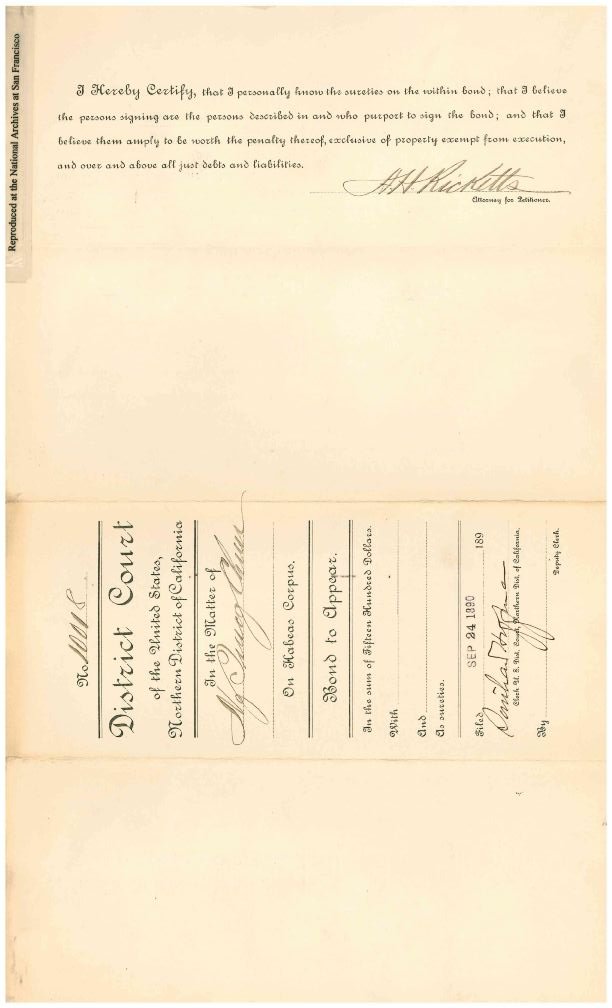 Reproduced at the National Archives at San Francisco
I Hereby Certify, that I personally know the sureties on the within bond; that I believe
the persons signing are the persons described in and who purport to sign the bond; and that I
believe them amply to be worth the penalty thereof, exclusive of property exempt from execution,
and over and above all just debts and liabilities.
A H Ricketts
Attorney for Petitioner.
No.
District Court
of the United States,
Northern District of California
In the Matter of
On Habeas Corpus.
Bond to Appear.
In the sum of Fifteen Hundred Dollars.
With
And
As sureties.
Filed SEP 24 1890 189
Clerk U. S. Dist. Court, Northern Dist. of California.
By
Deputy Clerk.